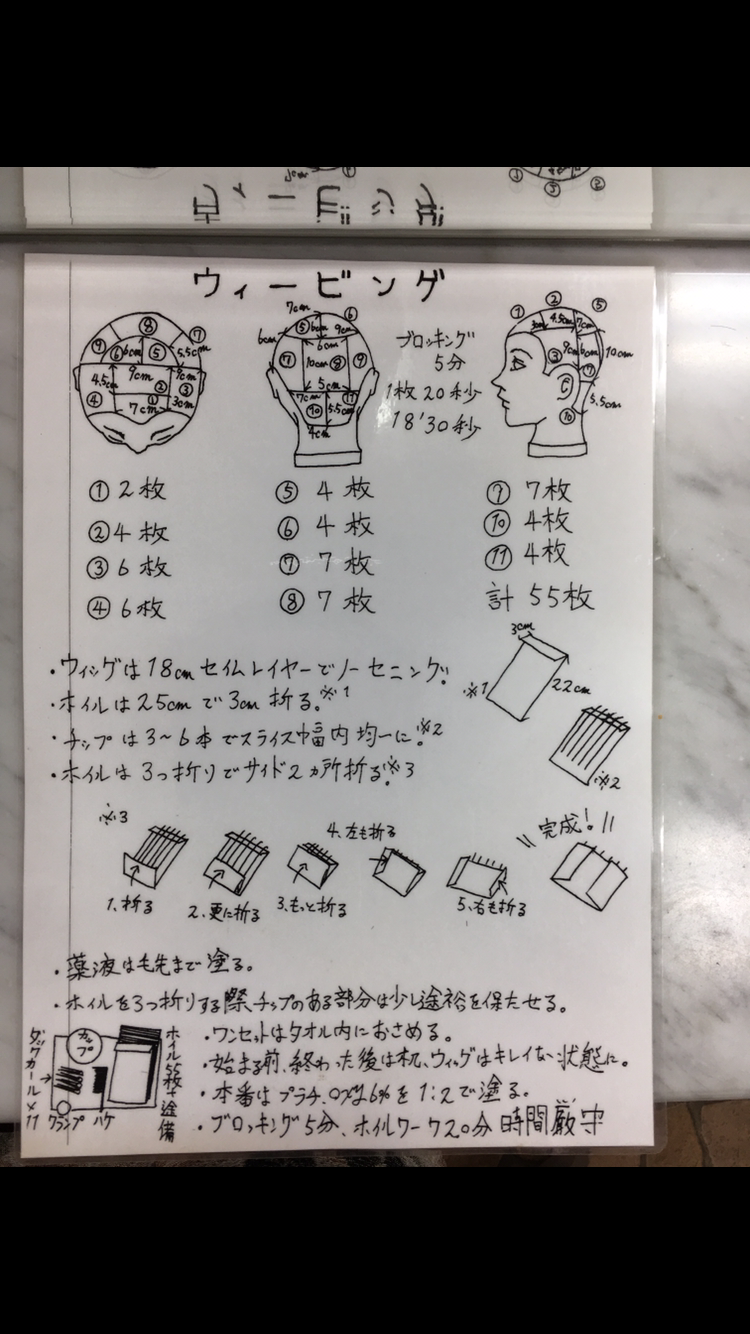 ウィービング
ブロッキング
5分
1枚20秒
18'30秒
① 2枚
② 4枚
③ 6枚
④ 6枚
⑤ 4枚
⑥ 4枚
⑦ 7枚
⑧ 7枚
⑨ 7枚
⑩ 4枚
⑪ 4枚
計 55枚
・ウィッグは18cmセイムレイヤーでノーセニング。
・ホイルは25cmで3cm折る。※1
・チップは3~6本でスライス幅内均一に。※2
・ホイルは3つ折りでサイド2ヵ所折る。※3
3cm
※1
22cm
※2
※3
1、折る
2、更に折る
3、もっと折る
4、左も折る
5、右も折る
完成!
・薬液は毛先まで塗る。
・ホイルを3つ折りする際、チップのある部分は少し途裕を保たせる。
・ワンセットはタオル内におさめる。
・始まる前、終わった後は机、ウィッグはキレイな状態に。
・本番はプラチ、
6%を1:2で塗る。
・ブロッキング5分、ホイルワーク20分 時間厳守
カップ
ダックカール×11
クランプ
ハケ
ホイル55枚+途備